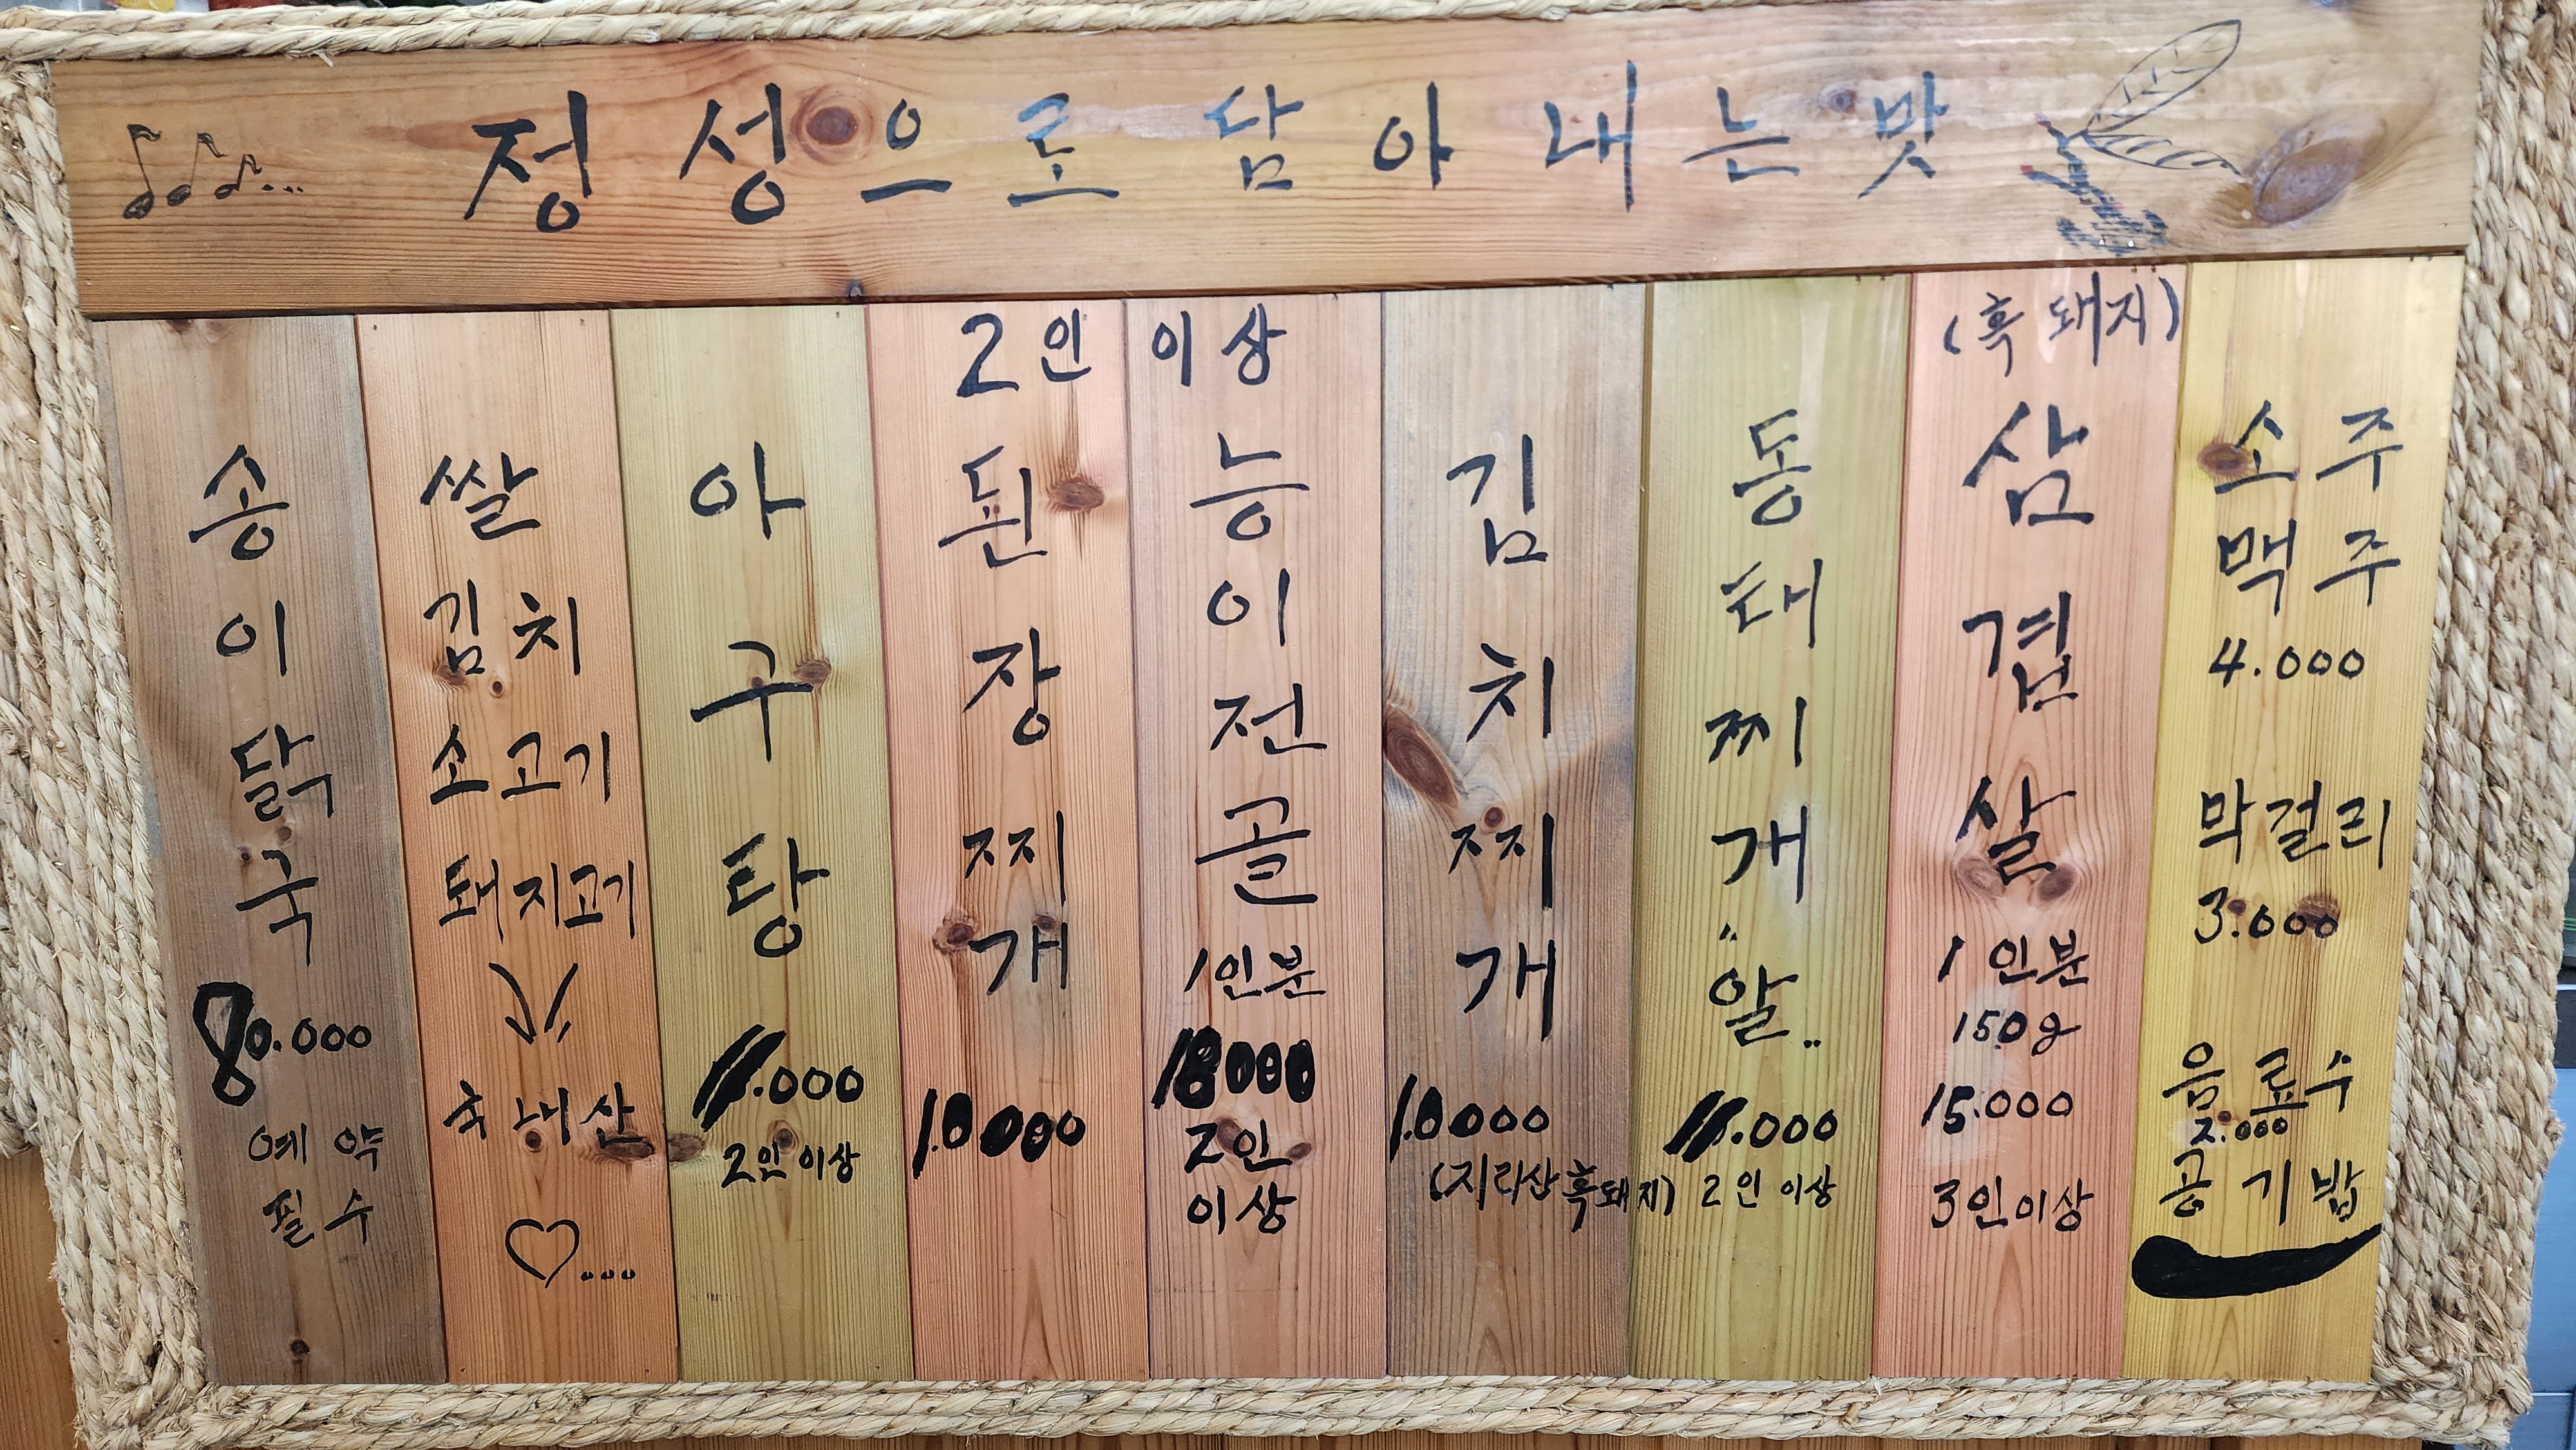 정성으로 담아내는 맛
송이닭국
80.000
예약
필수
쌀
김치
소고기
돼지고기
국내산
아구탕
11.000
2인 이상
2인 이상
된장찌개
10000
능이전골
1인분
18000
2인
이상
김치찌개
10000
(지리산 흑돼지)
동태찌개
"알"
11.000
2인 이상
(흑돼지)
삼겹살
1인분
150g
15.000
3인이상
소주
맥주
4.000
막걸리
3.000
음료수
2.000
공기밥